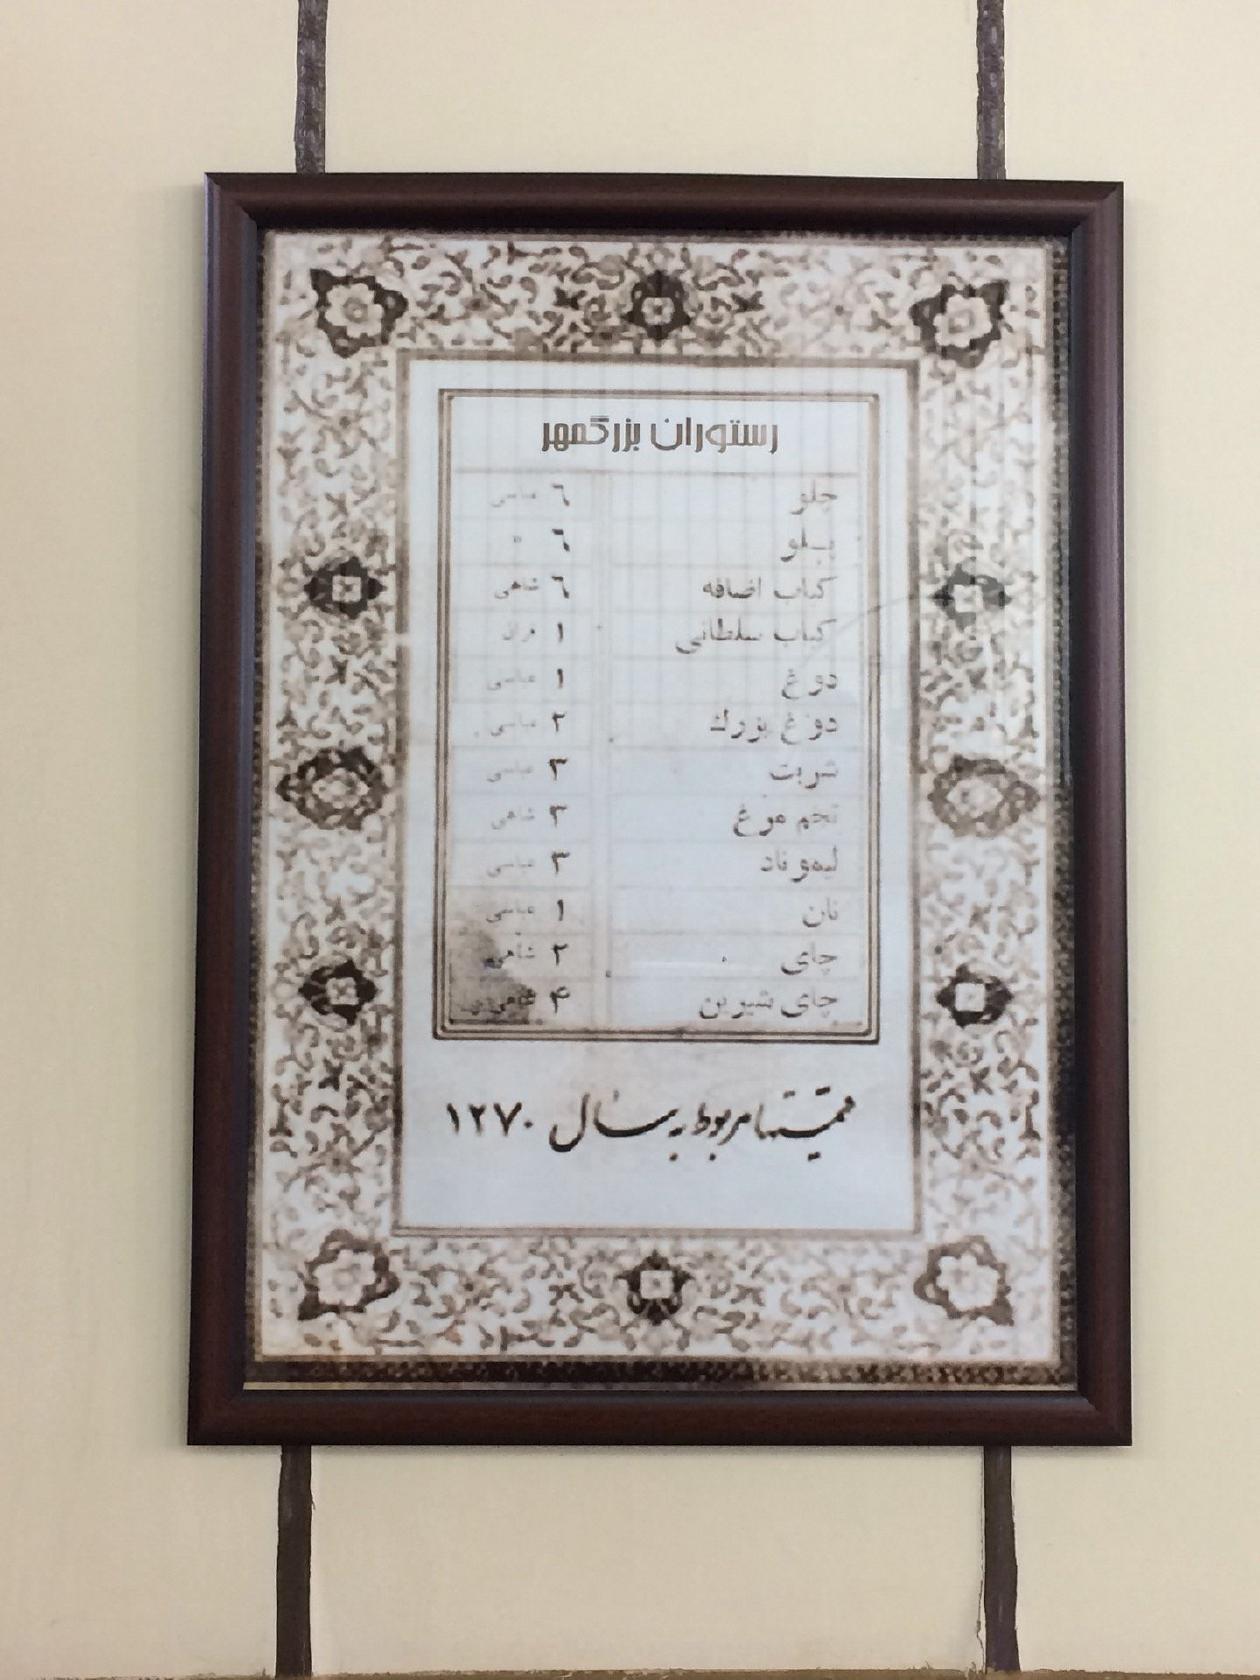 رستوران بزرگمهر
چلو ٦ عباسی
پلو ٦
کباب اضافه ٦ شاهی
کباب سلطانی ۱ قران
دوغ ۱ عباسی
دوغ بزرگ ۲ عباسی
شربت ۳ عباسی
تخم مرغ ۳ شاهی
لیموناد ۳ عباسی
نان ۱ عباسی
چای ۲ شاهی
چای شیرین ۴ شاهی
قیمتها مربوط به سال ۱۲۷۰